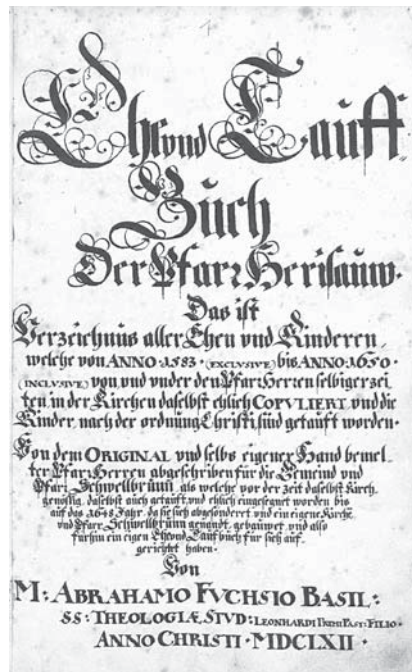 Ehe vnd Tauff
Buch
Der Pfarr Herisauw.
Das ist
Verzeichnus aller Ehen vnd Kinderen,
welche von ANNO .1583. (EXCLVSIVE) bis ANNO .1650.
(INCLVSIVE) von, vnd vnder den Pfar Herren selbiger zei
ten, in der Kirchen daselbst ehlich COPVLIERT vnd die
Kinder, nach der ordnung Christi, sind getaufft worden.
Von dem ORIGINAL vnd selbs eigener Hand bemel-
ter Pfar Herren abgeschriben für die Gemeind vnd
Pfarr Schwellbrunn, als welche vor der zeit daselbst Kirch-
genössig, daselbst auch getaufft, vnd ehlich eingesegnet worden bis
auf das 1648 Jahr, da sie sich abgesönderet vnd ein eigene Kirche
vnd Pfarr Schwellbrunn genandt, gebauwet, vnd also
fürhin ein eigen Ehe vnd Tauf buch für sich auf
gerichtet haben.
Von
M: ABRAHAMO FVCHSIO BASIL:
SS: THEOLOGIÆ STVD: LEONHARDI PAST: FILIO.
ANNO CHRISTI . MDCLXII .